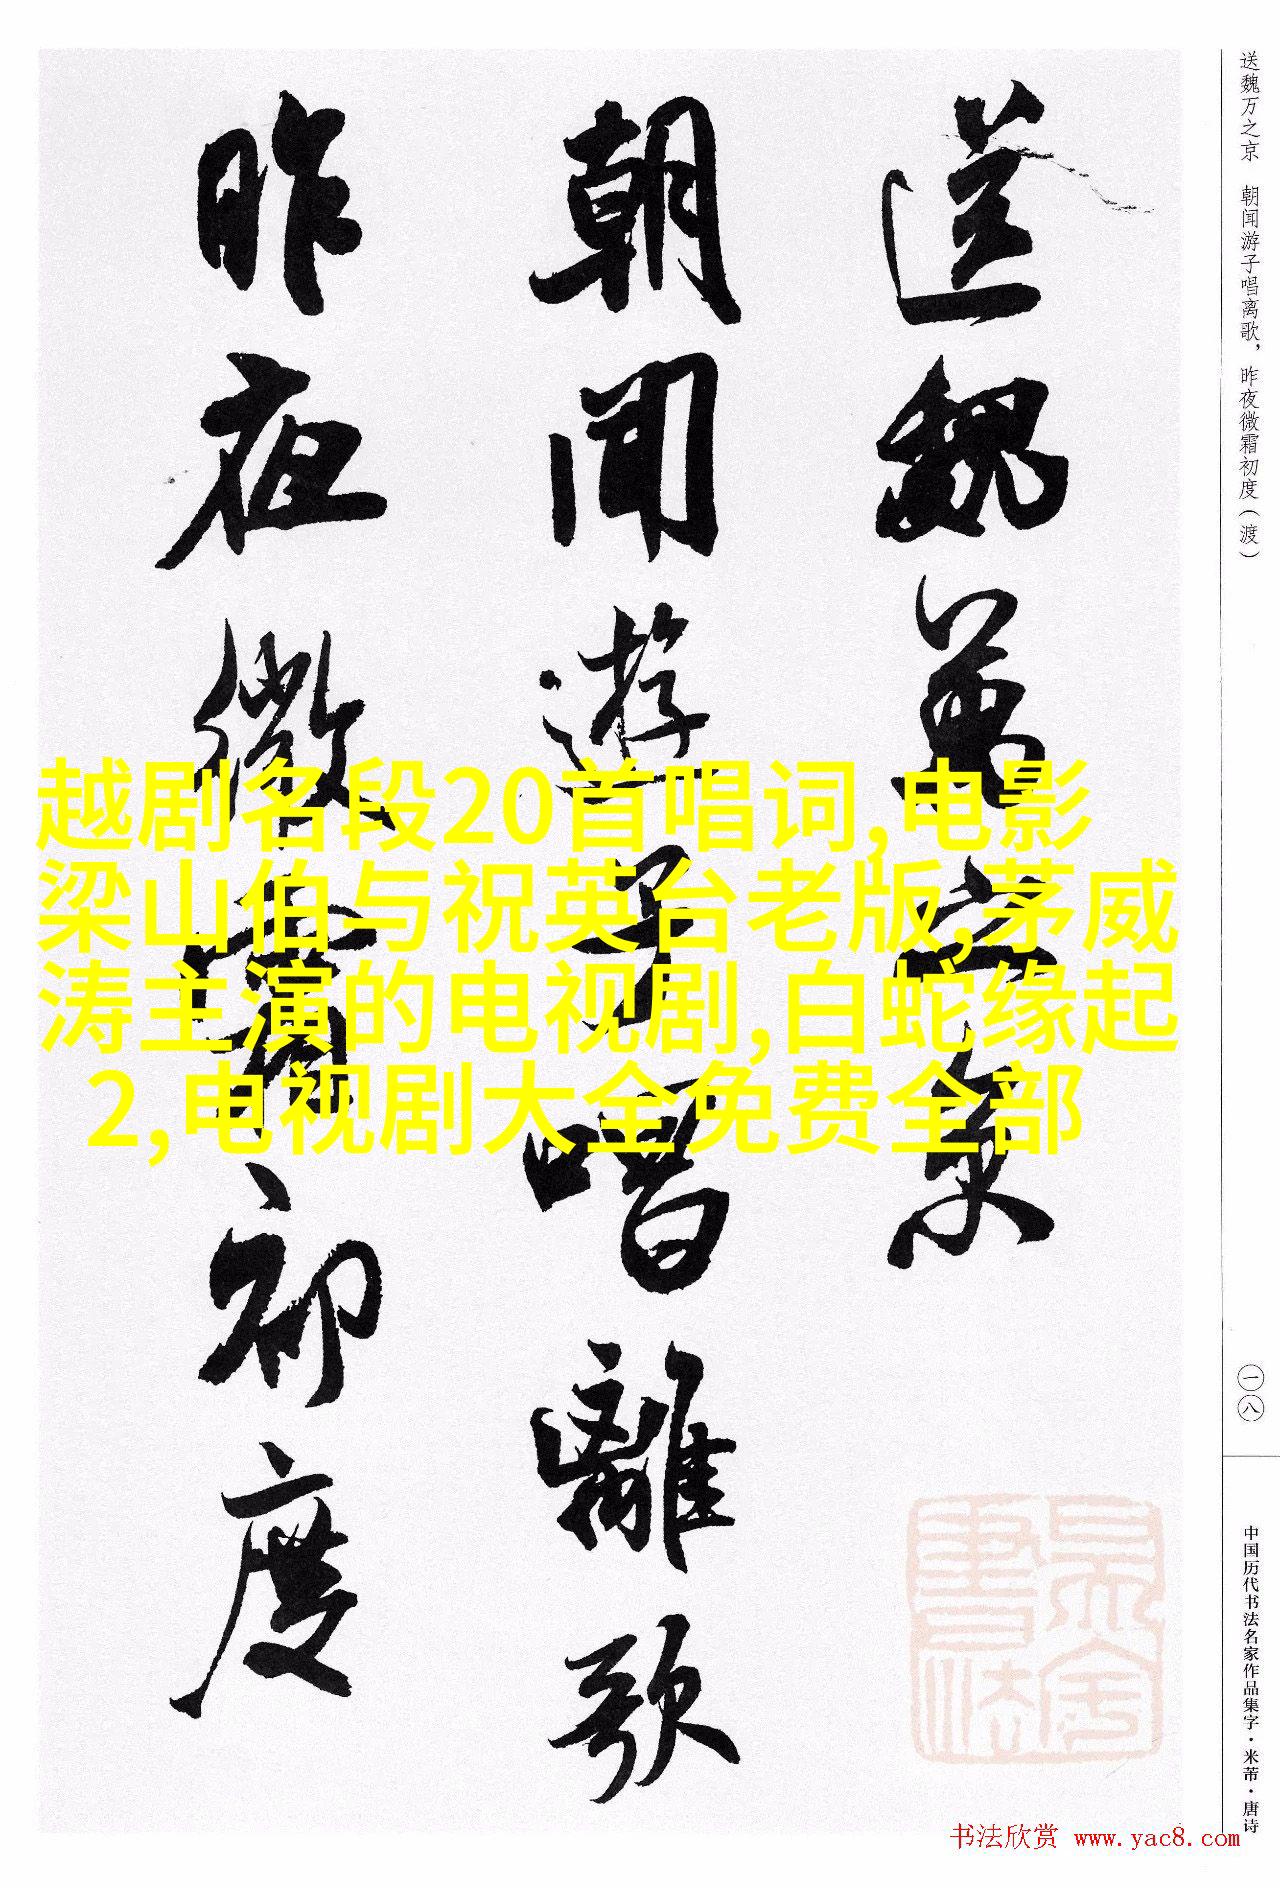 送魏萬之京
朝聞遊子唱離歌
昨夜微霜初度
越剧名段20首唱词,电影
梁山伯与祝英台老版,茅威
涛主演的电视剧,白蛇缘起
2,电视剧大全免费全部
送魏万之京 朝闻游子唱离歌，昨夜微霜初度（渡）
一八
中国历代书法名家作品集字·米芾·唐诗
书法欣赏 www.yac8.com